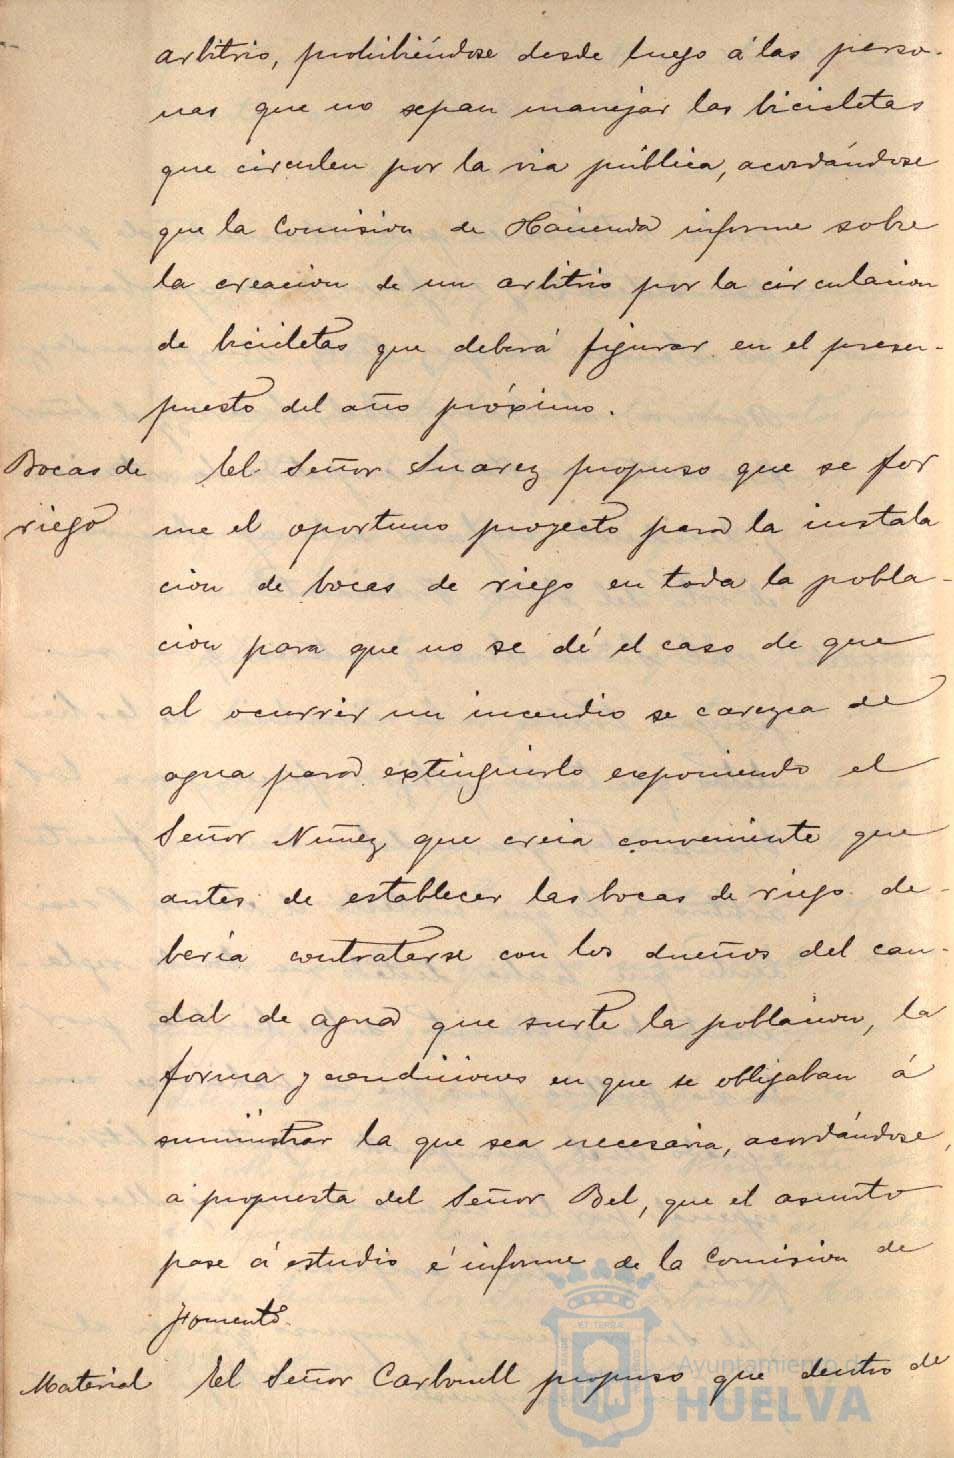 arbitrio, prohibiéndose desde luego á las perso-
nas que no sepan manejar las bicicletas
que circulen por la via pública, acordándose
que la Comision de Hacienda informe sobre
la creacion de un arbitrio por la circulacion
de bicicletas que deberá figurar en el presu-
puesto del año próximo.
Bocas de riego
El Señor Suarez propuso que se for
me el oportuno proyecto para la instala
cion de bocas de riego en toda la pobla-
cion para que no se dé el caso de que
al ocurrir un incendio se carezca de
agua para extinguirlo exponiendo el
Señor Nuñez que creia conveniente que
antes de establecer las bocas de riego de-
bería contratarse con los dueños del cau-
dal de agua que surte la poblacion, la
forma y condiciones en que se obligaban á
suministrar la que sea necesaria, acordándose,
a propuesta del Señor Bel, que el asunto
pase á estudio é informe de la Comision de
Fomento.
Material
El Señor Carbonell propuso que dentro de
Ayuntamiento de
HUELVA